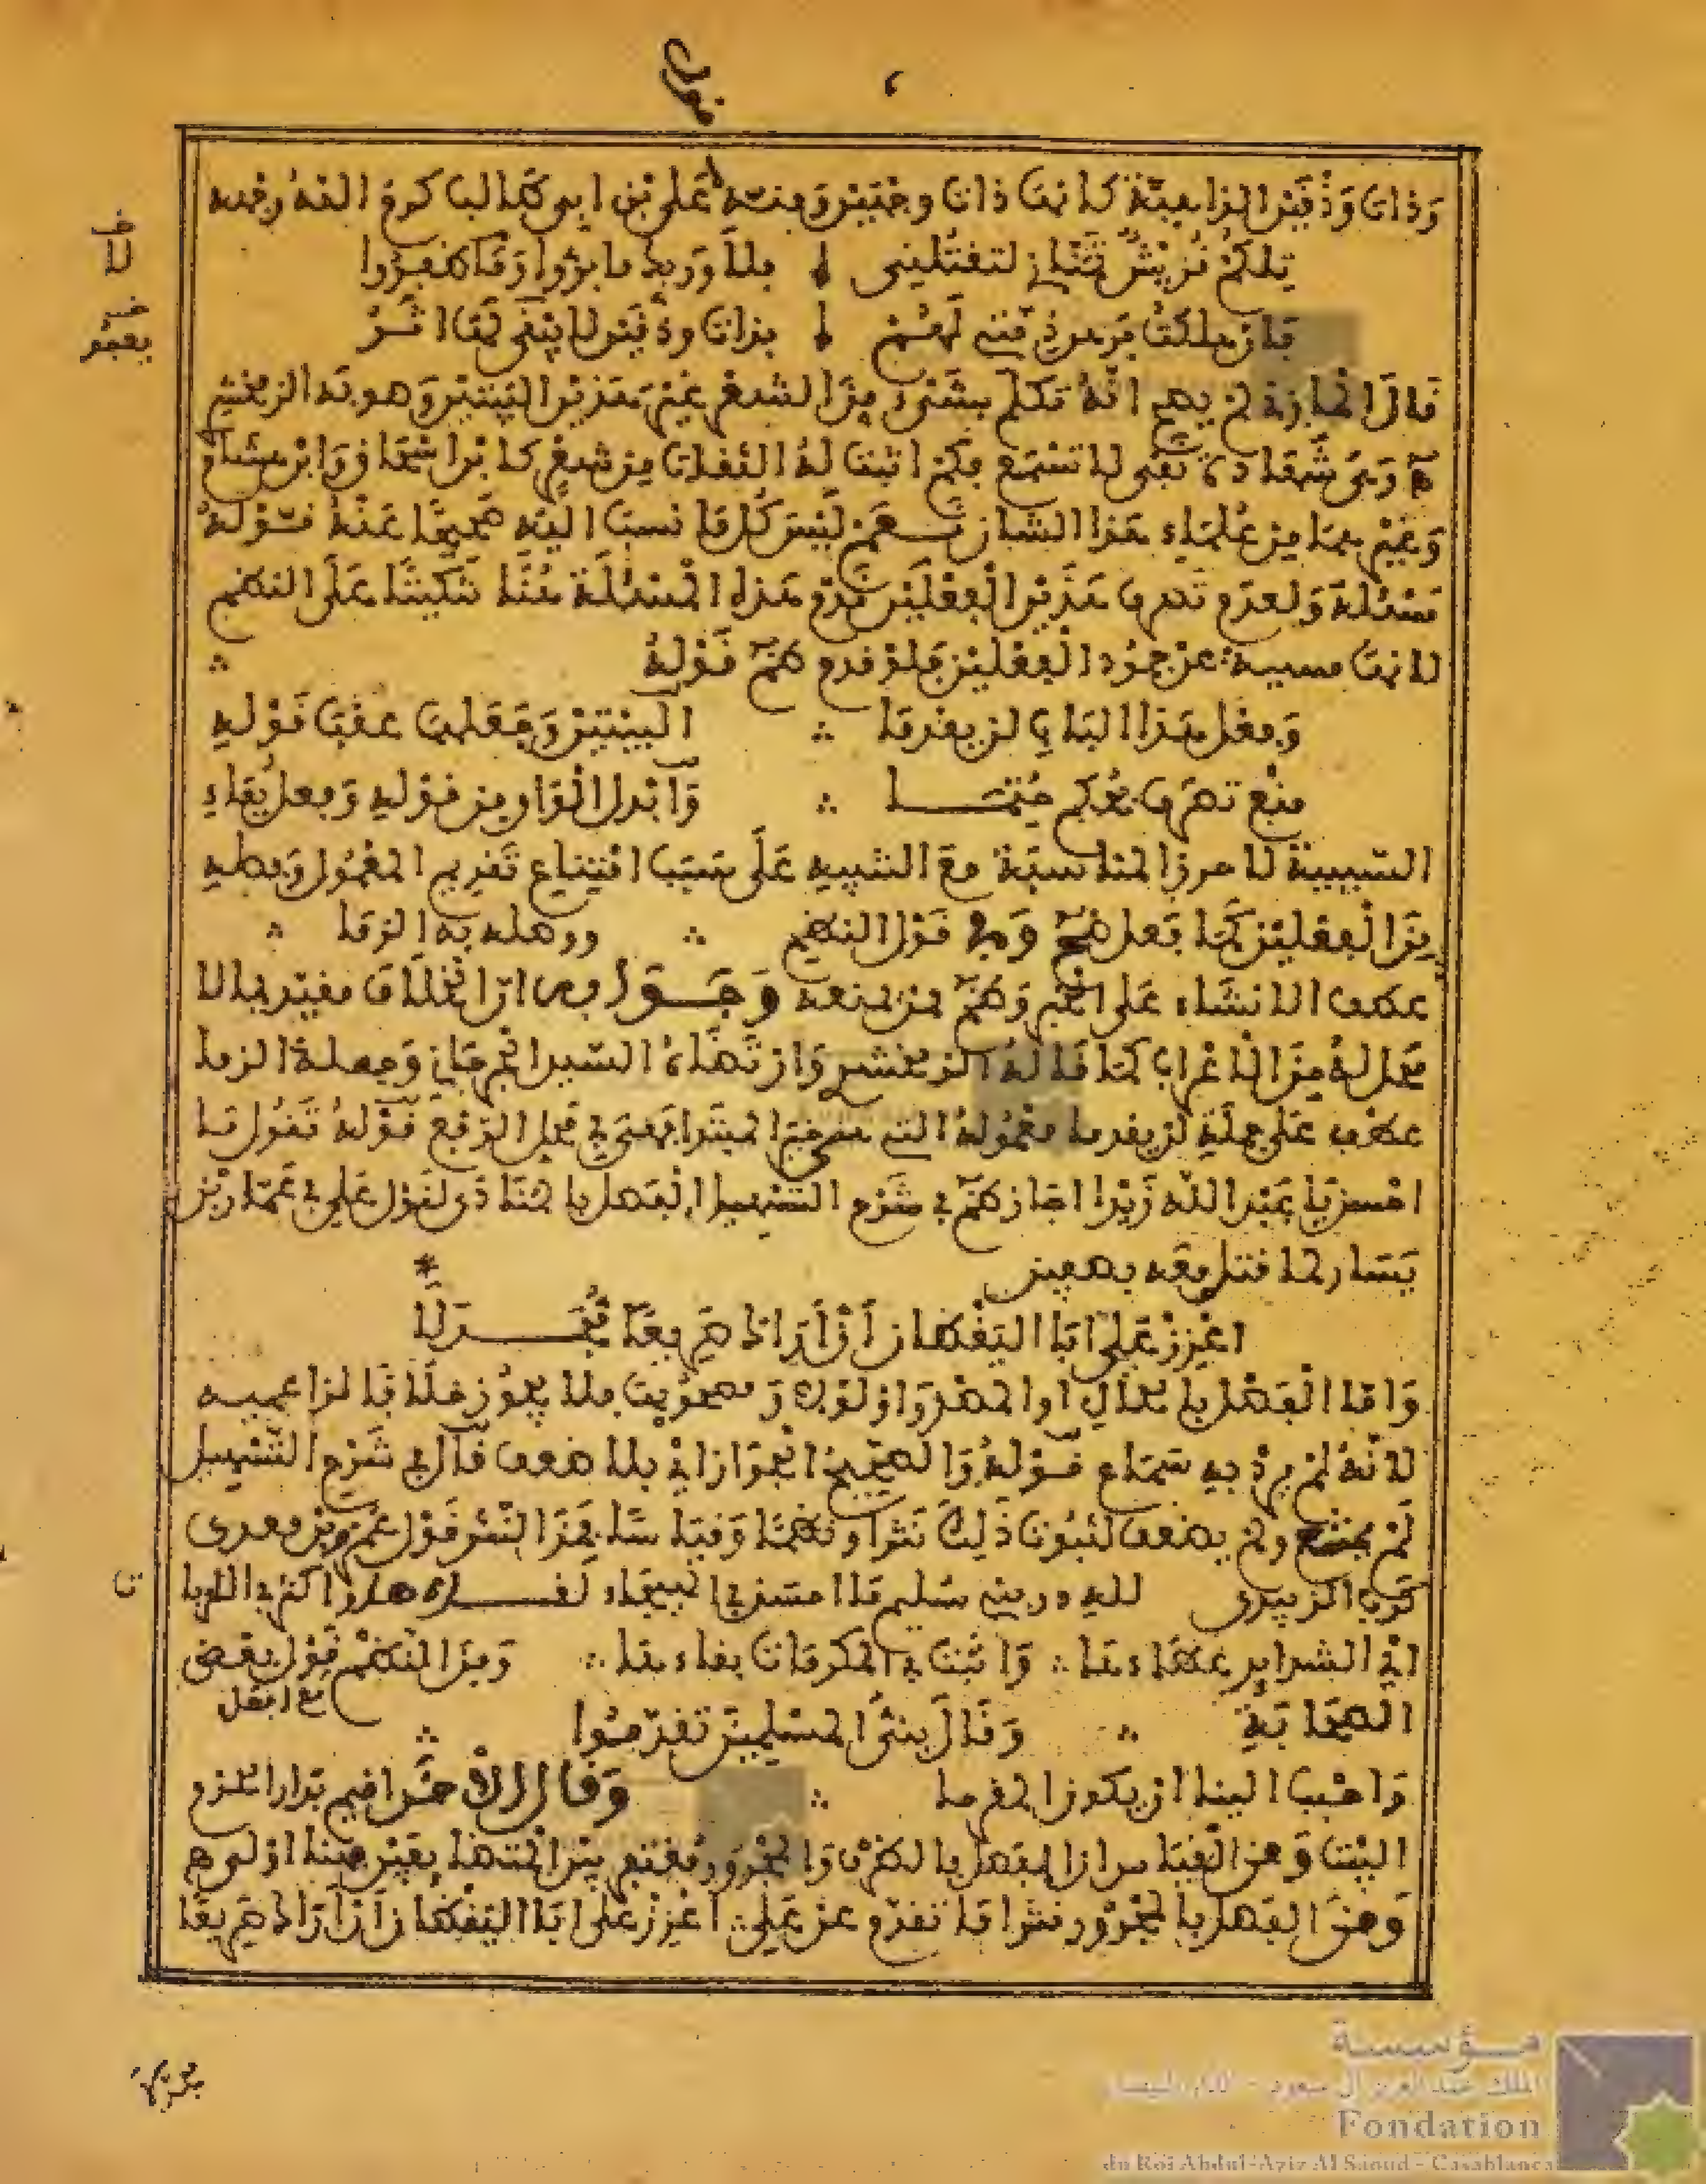 وذات ودقين الداهية كانت ذات وجهين ومنه علي بن ابي طالب كرم الله وجهه
تلكم قريش تمناني لتقتلني فلا وربك ما بروا وما ظفروا
فان هلكت فرهن ذمتي لهم بذات ودقين لا يعفى لها اثر
قال المازني لم يصح انه تكلم بشيء من الشعر غير هذين البيتين وصوبه الزمخشري
وهي شهادة نفي لا تسمع فكم اثبت له الثقات من شعر كابن اسحاق وابن هشام
وغيرهما من علماء هذا الشان نعم ليس كل ما نسب اليه صحيحا عنه قوله
مسئلة ولعدم تصرف هذين الفعلين قدم هذه المسئلة هنا تنكيتا على النظم
لانها مسببة عن جمود الفعلين فلو قدم ظم قوله
وفعل هذا الباب لن يقدما البيتين وجعلت عقب قوله
منع تصرف بحكم حتما وابدل الواو من قوله وفعل بفاء
السببية لاحرز المناسبة مع التنبيه على سبب امتناع تقديم المعمول وفصله
من الفعلين كما فعل ضح وفي قول النظم ووصله به الزما
عطف الانشاء على الخبر وظم ممن منعه وجوابه ان الخلاف مقيد بما لا
محل له من الاعراب كما قاله الزمخشري وارتضاه السيد الجرجاني وجملة الزما
عطف على جملة لن يقدما معموله التي هي خبر المبتدا فهي في محل الرفع قوله تقول ما
احسن يا عبد الله زيدا اجاز ظم في شرح التسهيل الفصل بالمنادى لقول علي في عمار بن
ياسر لما قتل معه بصفين
اعزز علي ابا اليقظان ان اراك صريعا مجدلا
واما الفصل بالحال او المصدر او لولا ومصحوبها فلا يجوز خلافا لزاعميه
لانه لم يرد به سماع قوله والصحيح الجواز اي بلا ضعف قال في شرح التسهيل
لم يمتنع ولم يضعف لثبوت ذلك نثرا ونظما وقياسا فمن النثر قول عمرو بن معدي
كرب الزبيدي لله در بني سليم ما احسن في الهيجاء لقاءها واكثر في اللزبا
اي الشدايد عطاءها واثبت في المكرمات بقاءها ومن النظم قول بعض
الصحابة وقال نبي المسلمين تقدموا
واحبب الينا ان يكون المقدما وقال الاخر اقيم بدار الحزم
البيت ومن القياس ان الفصل بالظرف والمجرور مغتفر بين المتضايفين فهنا اولى
ومن الفصل بالمجرور نثرا ما تقدم عن علي اعزز علي ابا اليقظان ان اراك صريعا
مؤسسة
الملك عبد العزيز آل سعود - الدار البيضاء
Fondation
du Roi Abdul-Aziz Al Saoud - Casablanca